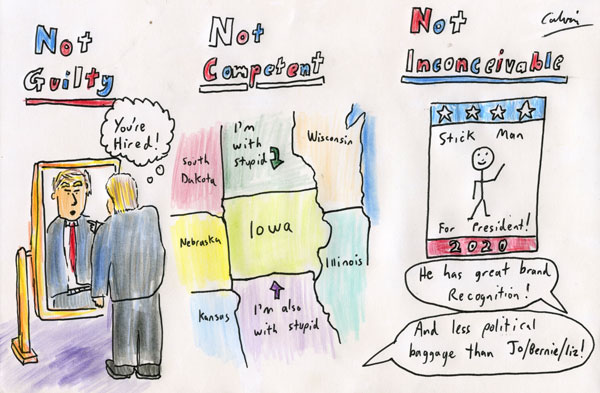 Not
Guilty
You're
Hired!
Not
Competent
South
Dakota
I'm
with
stupid
Wisconsin
Nebraska
Iowa
Illinois
Kansas
I'm also
with stupid
Not
Inconceivable
Calvin
Stick Man
For President!
2020
He has great brand
Recognition!
And less political
baggage than Jo/Bernie/Liz!